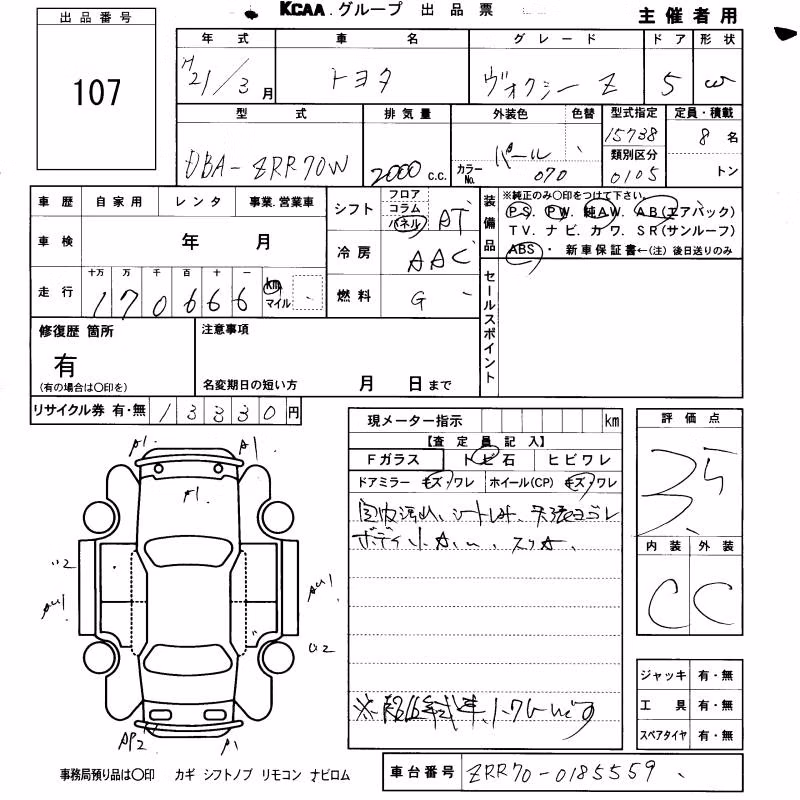 KCAA.グループ 出品票 主催者用
出品番号
107
年式 車名 グレード ドア 形状
H21/3月 トヨタ ヴォクシー Z 5 W
型式 排気量 外装色 色替 型式指定 定員・積載
DBA-ZRR70W 2000c.c. パール 15738 8名
カラーNo. 070 類別区分 0105 トン
車歴 自家用 レンタ 事業.営業車
シフト フロア コラム パネル AT
装備品 ※純正のみ○印をつけて下さい。
PS. PW. 純AW. AB(エアバック)
TV. ナビ. カワ. SR(サンルーフ)
ABS ・ 新車保証書←(注)後日送りのみ
車検 年 月
冷房 AAC
走行 十万 万 千 百 十 一
170666 km マイル
燃料 G
セールスポイント
修復歴 箇所
有
(有の場合は○印を)
注意事項
名変期日の短い方 月 日まで
リサイクル券 有・無 13330円
現メーター指示 km
【査定員記入】
Fガラス トビ石 ヒビワレ
ドアミラー キズ・ワレ ホイール(CP) キズ・ワレ
評価点
3.5
内装 外装
C C
A1 A1
A1
AU1
U2
AP2
ジャッキ 有・無
工具 有・無
スペアタイヤ 有・無
事務局預り品は○印 カギ シフトノブ リモコン ナビロム
車台番号 ZRR70-0185559